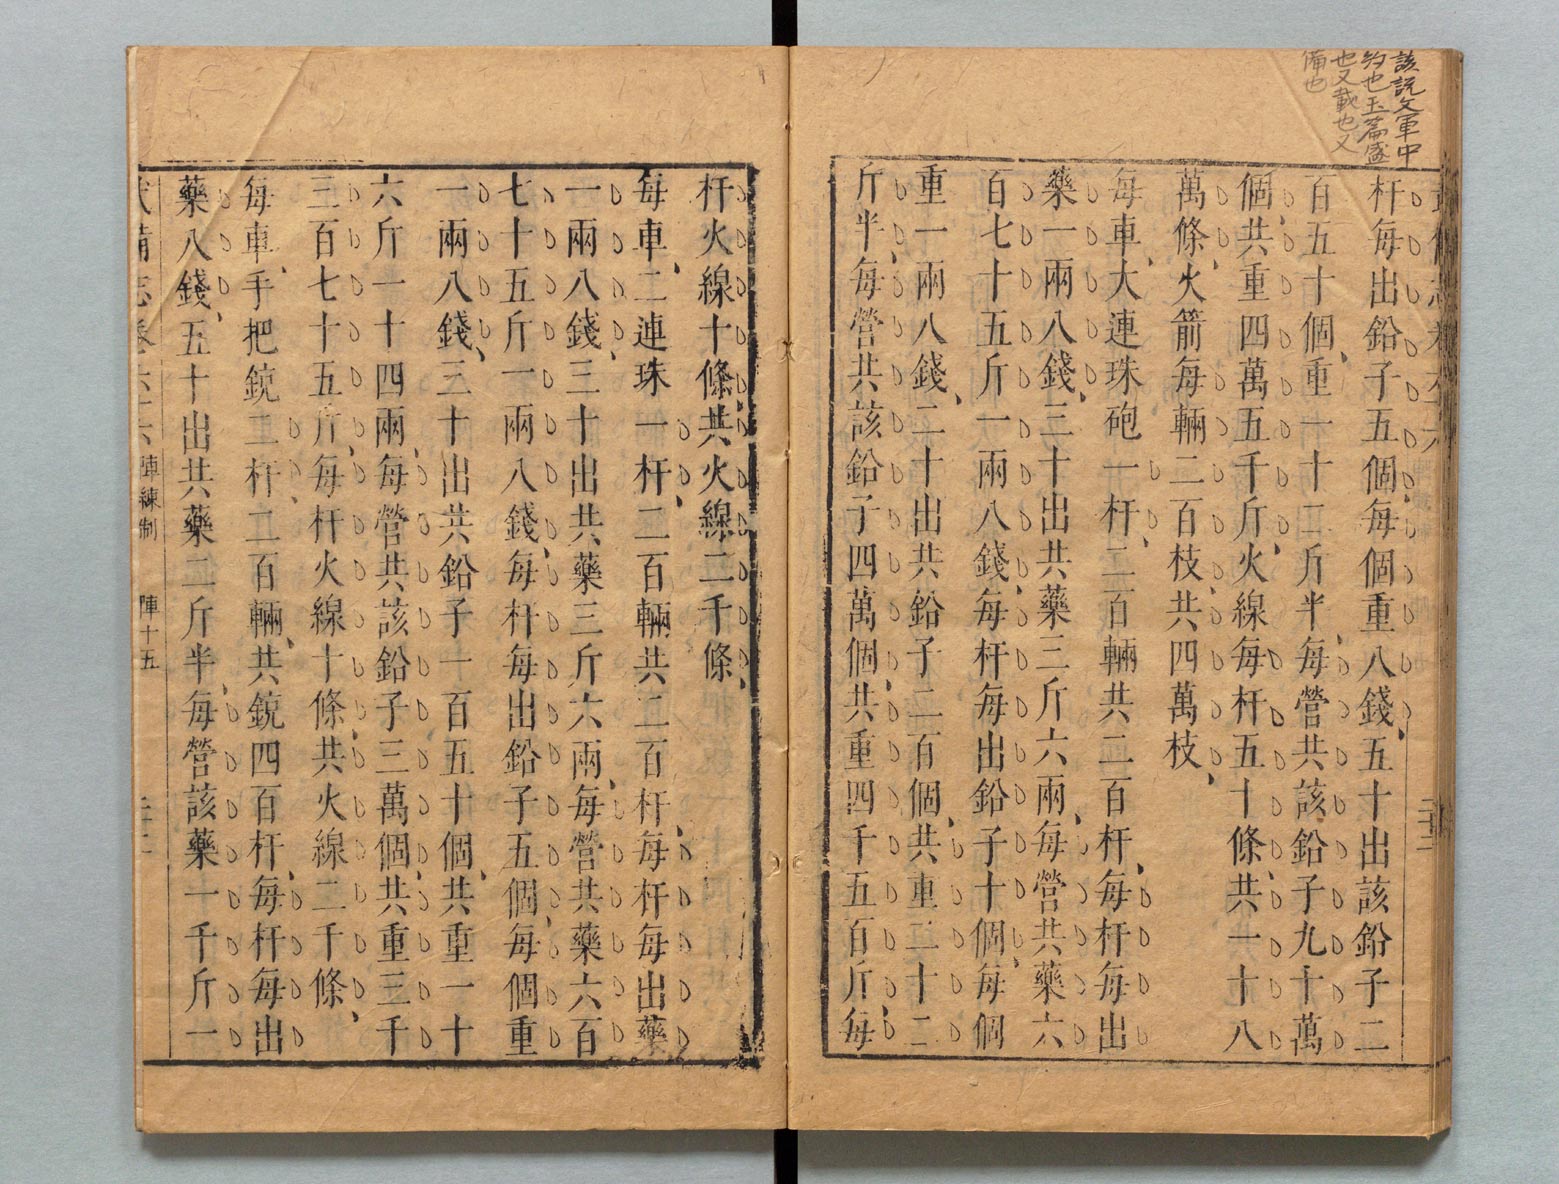 該說文軍中
約也玉篇盛
也又載也又
備也
杆每出鉛子五個每個重八錢五十出該鉛子二
百五十個重一十二斤半每營共該鉛子九十萬
個共重四萬五千斤火線每杆五十條共一十八
萬條火箭每輛二百枝共四萬枝
每車大連珠砲一杆二百輛共二百杆每杆每出
藥一兩八錢三十出共藥三斤六兩每營共藥六
百七十五斤一兩八錢每杆每出鉛子十個每個
重一兩八錢二十出共鉛子二百個共重二十二
斤半每營共該鉛子四萬個共重四千五百斤每
杆火線十條共火線二千條
每車二連珠一杆二百輛共二百杆每杆每出藥
一兩八錢三十出共藥三斤六兩每營共藥六百
七十五斤一兩八錢每杆每出鉛子五個每個重
一兩八錢三十出共鉛子一百五十個共重一十
六斤一十四兩每營共該鉛子三萬個共重三千
三百七十五斤每杆火線十條共火線二千條
每車手把銃二杆二百輛共銃四百杆每杆每出
藥八錢五十出共藥二斤半每營該藥一千斤一
武備志卷 陣練制 陣十五